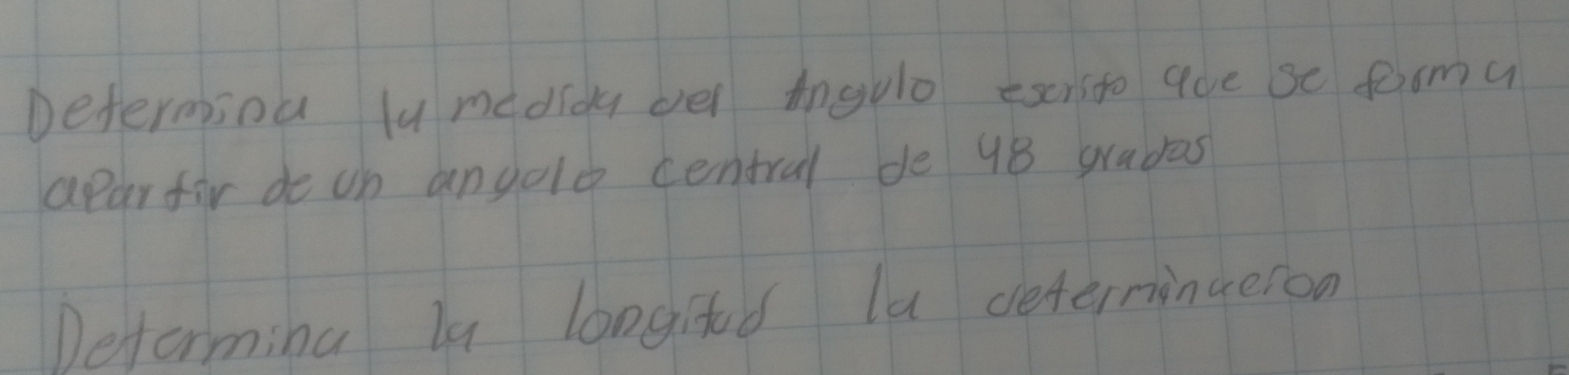 Determina la medida del Angulo escrito que se forma
apartir de un angulo central de 48 grados
Determina la longitud la determinacion